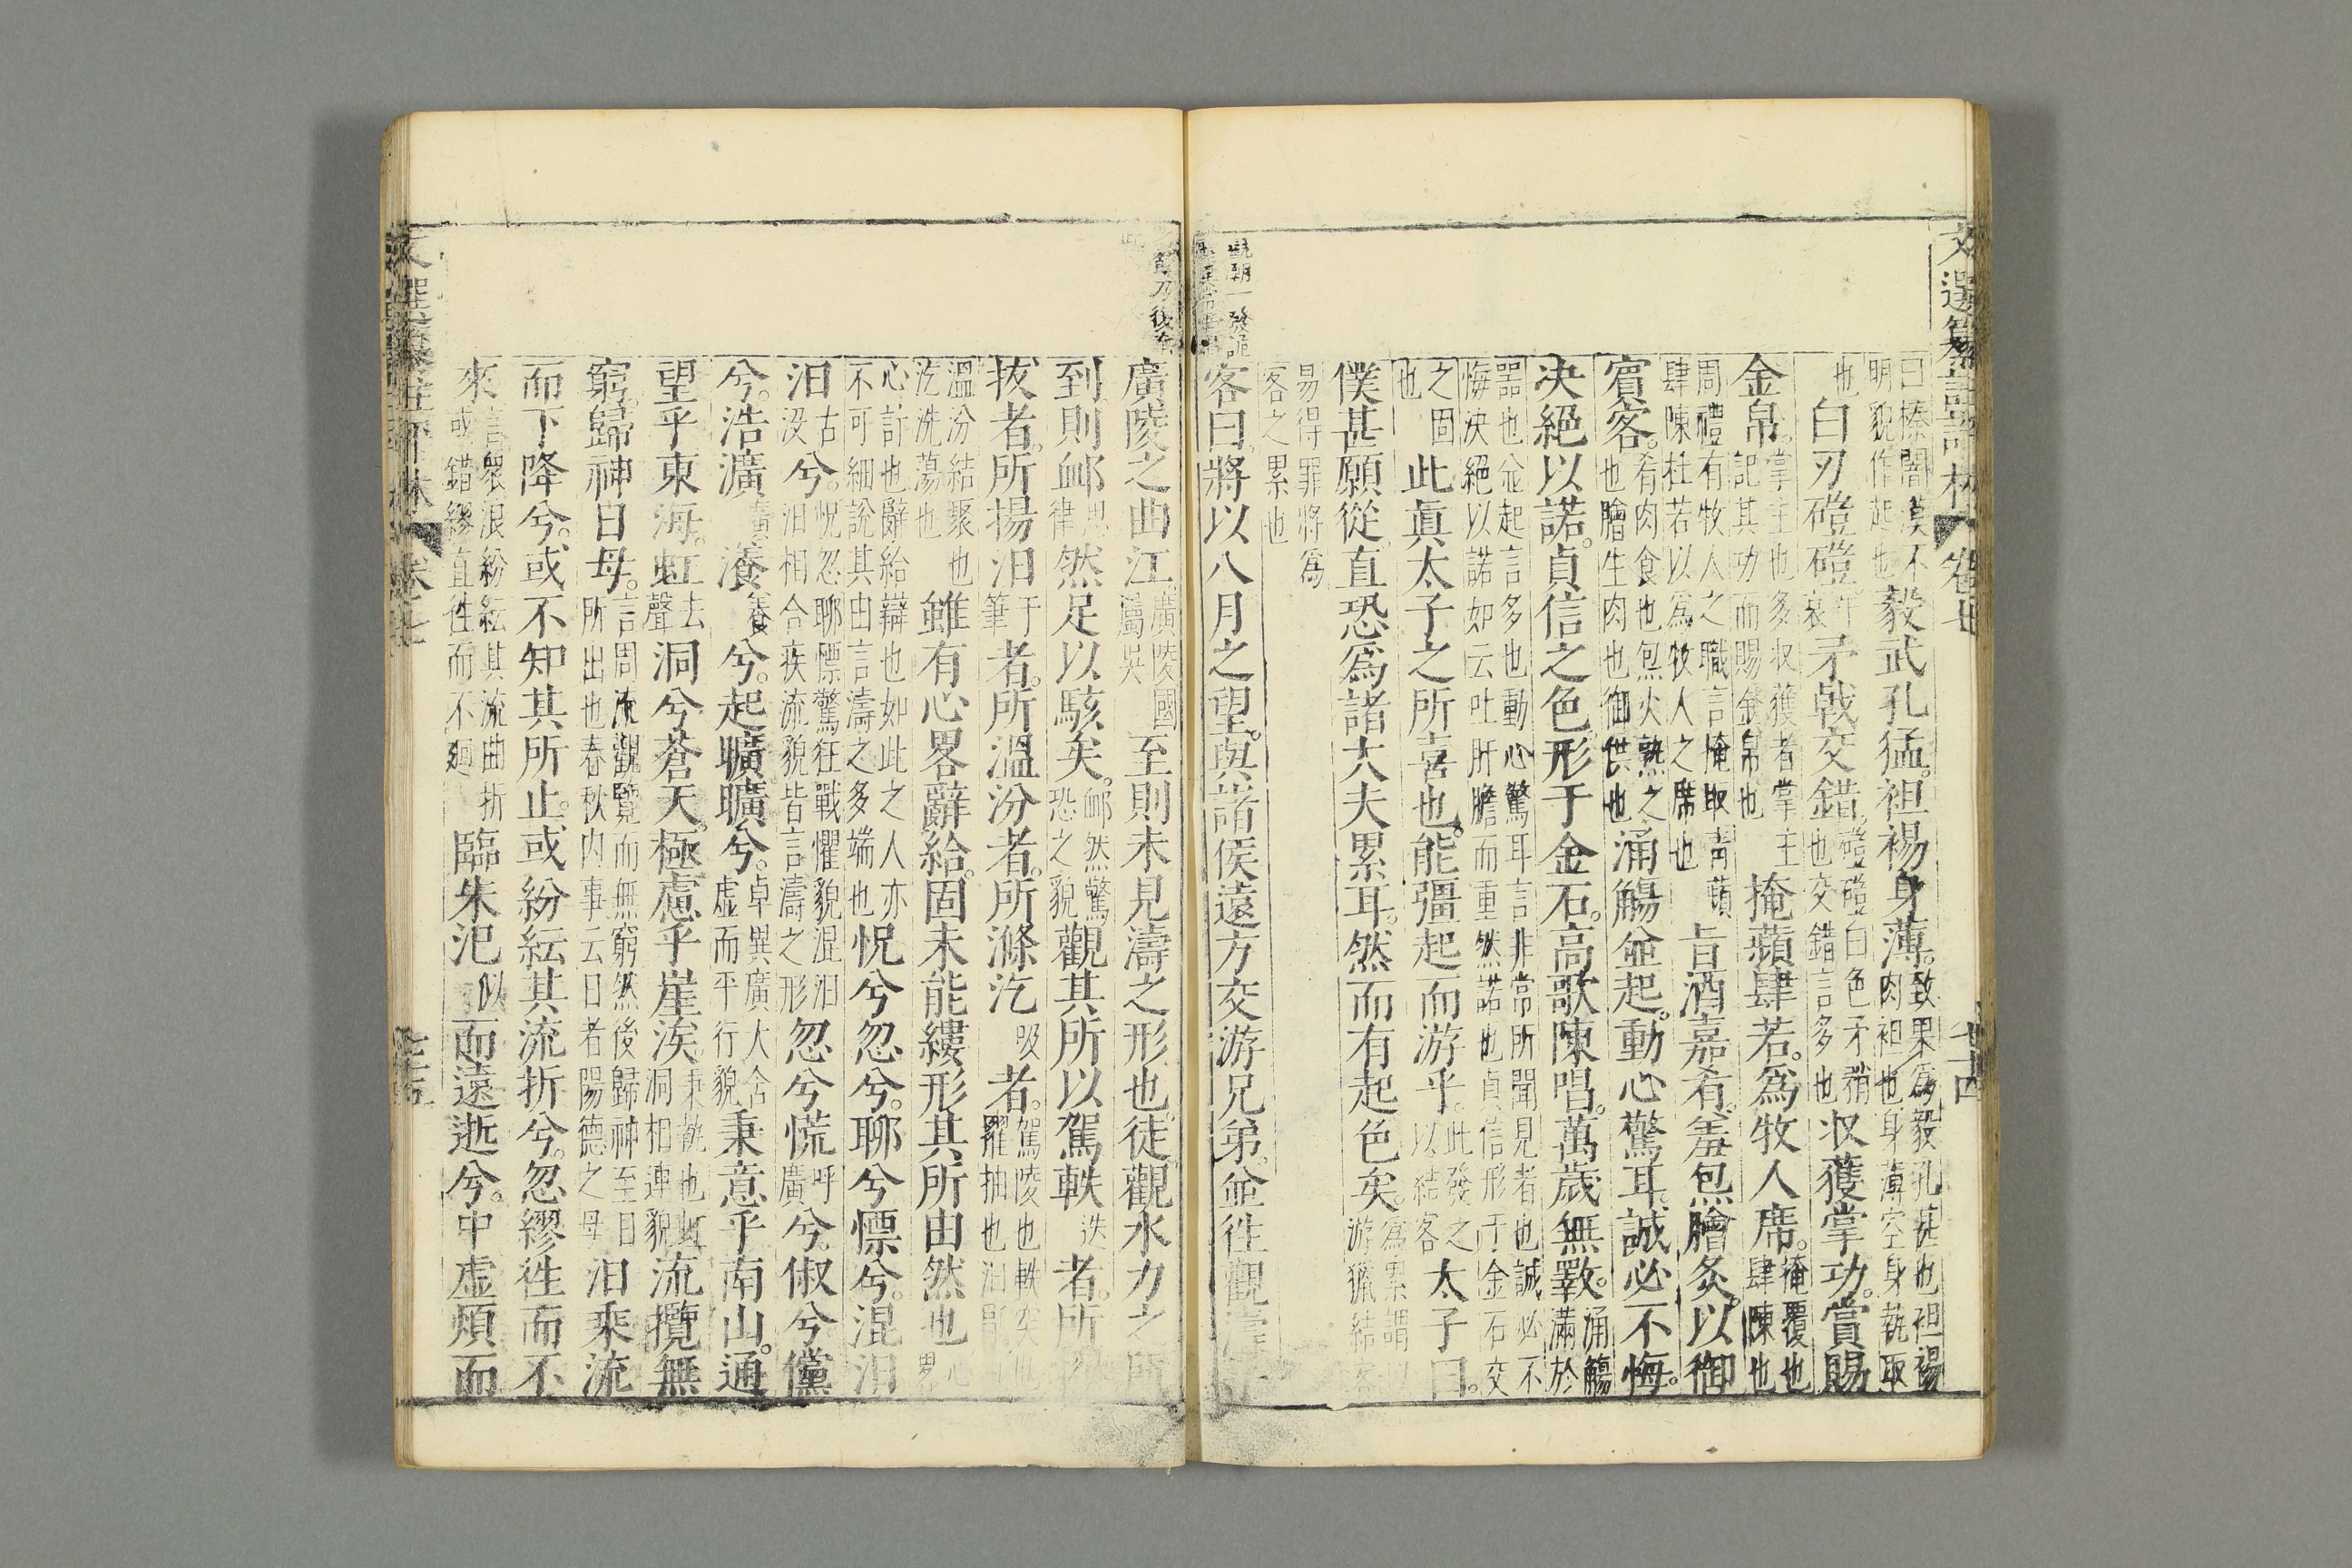 文選纂註評林 卷七 七十四
曰榛闇漠不
明貌作起也
毅武孔猛。袒裼身薄。
致果爲毅孔甚也袒裼
肉袒也身薄空身執取
也
白刃磑磑。
矛戟交錯。
磑磑白色矛矟
也交錯言多也
收獲掌功。賞賜
金帛。
掌主也多收獲者掌主
記其功而賜金帛也
掩蘋肆若。爲牧人席。
掩覆也
肆陳也
周禮有牧人之職言掩取青蘋
肆陳杜若以爲牧人之席也
旨酒嘉肴。羞炰膾炙。以御
賓客。
肴肉食也炰火熟之
也膾生肉也御供也
涌觴並起。動心驚耳。誠必不悔。
决絕以諾。貞信之色。形于金石。高歌陳唱。萬歲無斁。
涌觴
滿於
噐也並起言多也動心驚耳言非常所聞見者也誠必不
悔决絕以諾如云吐肝膽而重然諾也貞信形于金石交
之固
也
此眞太子之所喜也。能彊起而游乎。
此發之
以結客
太子曰。
僕甚願從。直恐爲諸大夫累耳。然而有起色矣。
爲累謂以
游獵結客
易得罪將爲
客之累也
觀朝一發詭
客曰。將以八月之望。與諸侯遠方交游兄弟。並往觀濤乎
廣陵之曲江
廣陵國
屬吳
至則未見濤之形也。徒觀水力之所
到。則䘏
然足以駭矣。
䘏然驚
恐之貌
觀其所以駕軼
迭
者。所
拔者。所揚汨
于
筆
者。所溫汾者。所滌汔
吸
者。
駕陵也軼突也
擢抽也汨
溫汾結聚也
汔洗蕩也
雖有心畧辭給。固未能縷形其所由然也
心
畧
心計也辭給辯也如此之人亦
不可細說其由言濤之多端也
怳兮忽兮。聊兮慓兮。混汨
汨
古
沒
兮。
怳忽聊慓驚狂戰懼貌混汨
汨相合疾流貌皆言濤之形
忽兮慌
呼
廣
兮。俶兮儻
兮。浩瀇
廣
瀁
養
兮。起曠曠兮。
卓異廣大合
虛而平行貌
秉意乎南山。通
望乎東海。虹
去
聲
洞兮蒼天。極慮乎崖涘。
秉執也虹
洞相連貌
流攬無
窮。歸神日母。
言周流觀覽而無窮然後歸神至日
所出也春秋内事云日者陽德之母
汨乘流
而下降兮。或不知其所止。或紛紜其流折兮。忽繆往而不
來
言衆浪紛紜其流曲折
或錯繆直往而不廻
臨朱汜
似
而遠逝兮。中虛煩而
文選纂註評林 卷七 七十五